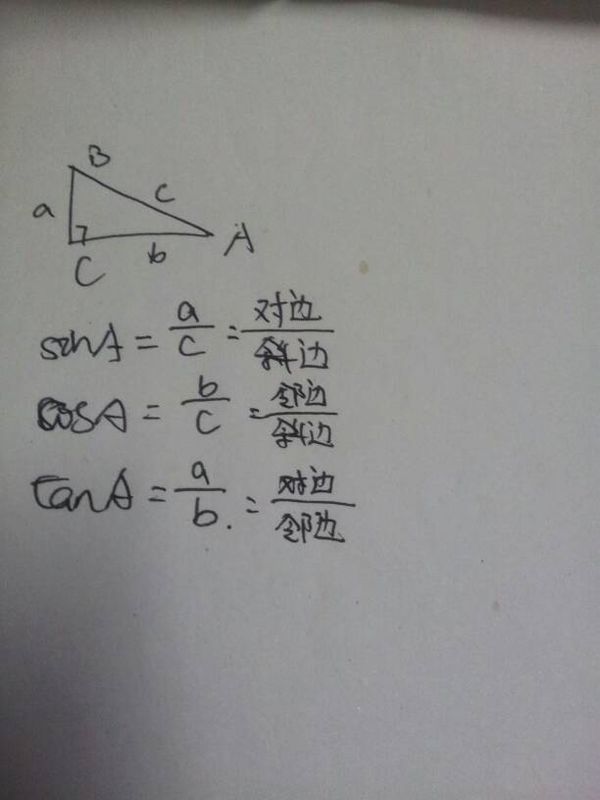 B
a c
C b A
sinA = a/c = 对边/斜边
cosA = b/c = 邻边/斜边
tanA = a/b. = 对边/邻边